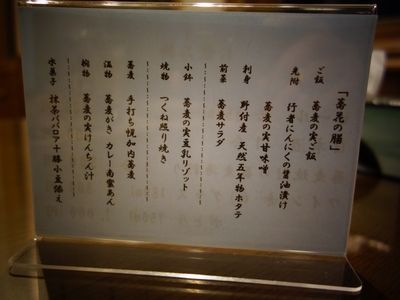 「蕎花の膳」
ご飯 蕎麦の実ご飯
先附 行者にんにくの醤油漬け
蕎麦の実甘味噌
刺身 野付産 天然五年物ホタテ
前菜 蕎麦サラダ
小鉢 蕎麦の実豆乳リゾット
焼物 つくね照り焼き
蕎麦 手打ち幌加内蕎麦
温物 蕎麦がき カレー南蛮あん
椀物 蕎麦の実けんちん汁
水菓子 抹茶ババロア十勝小豆添え